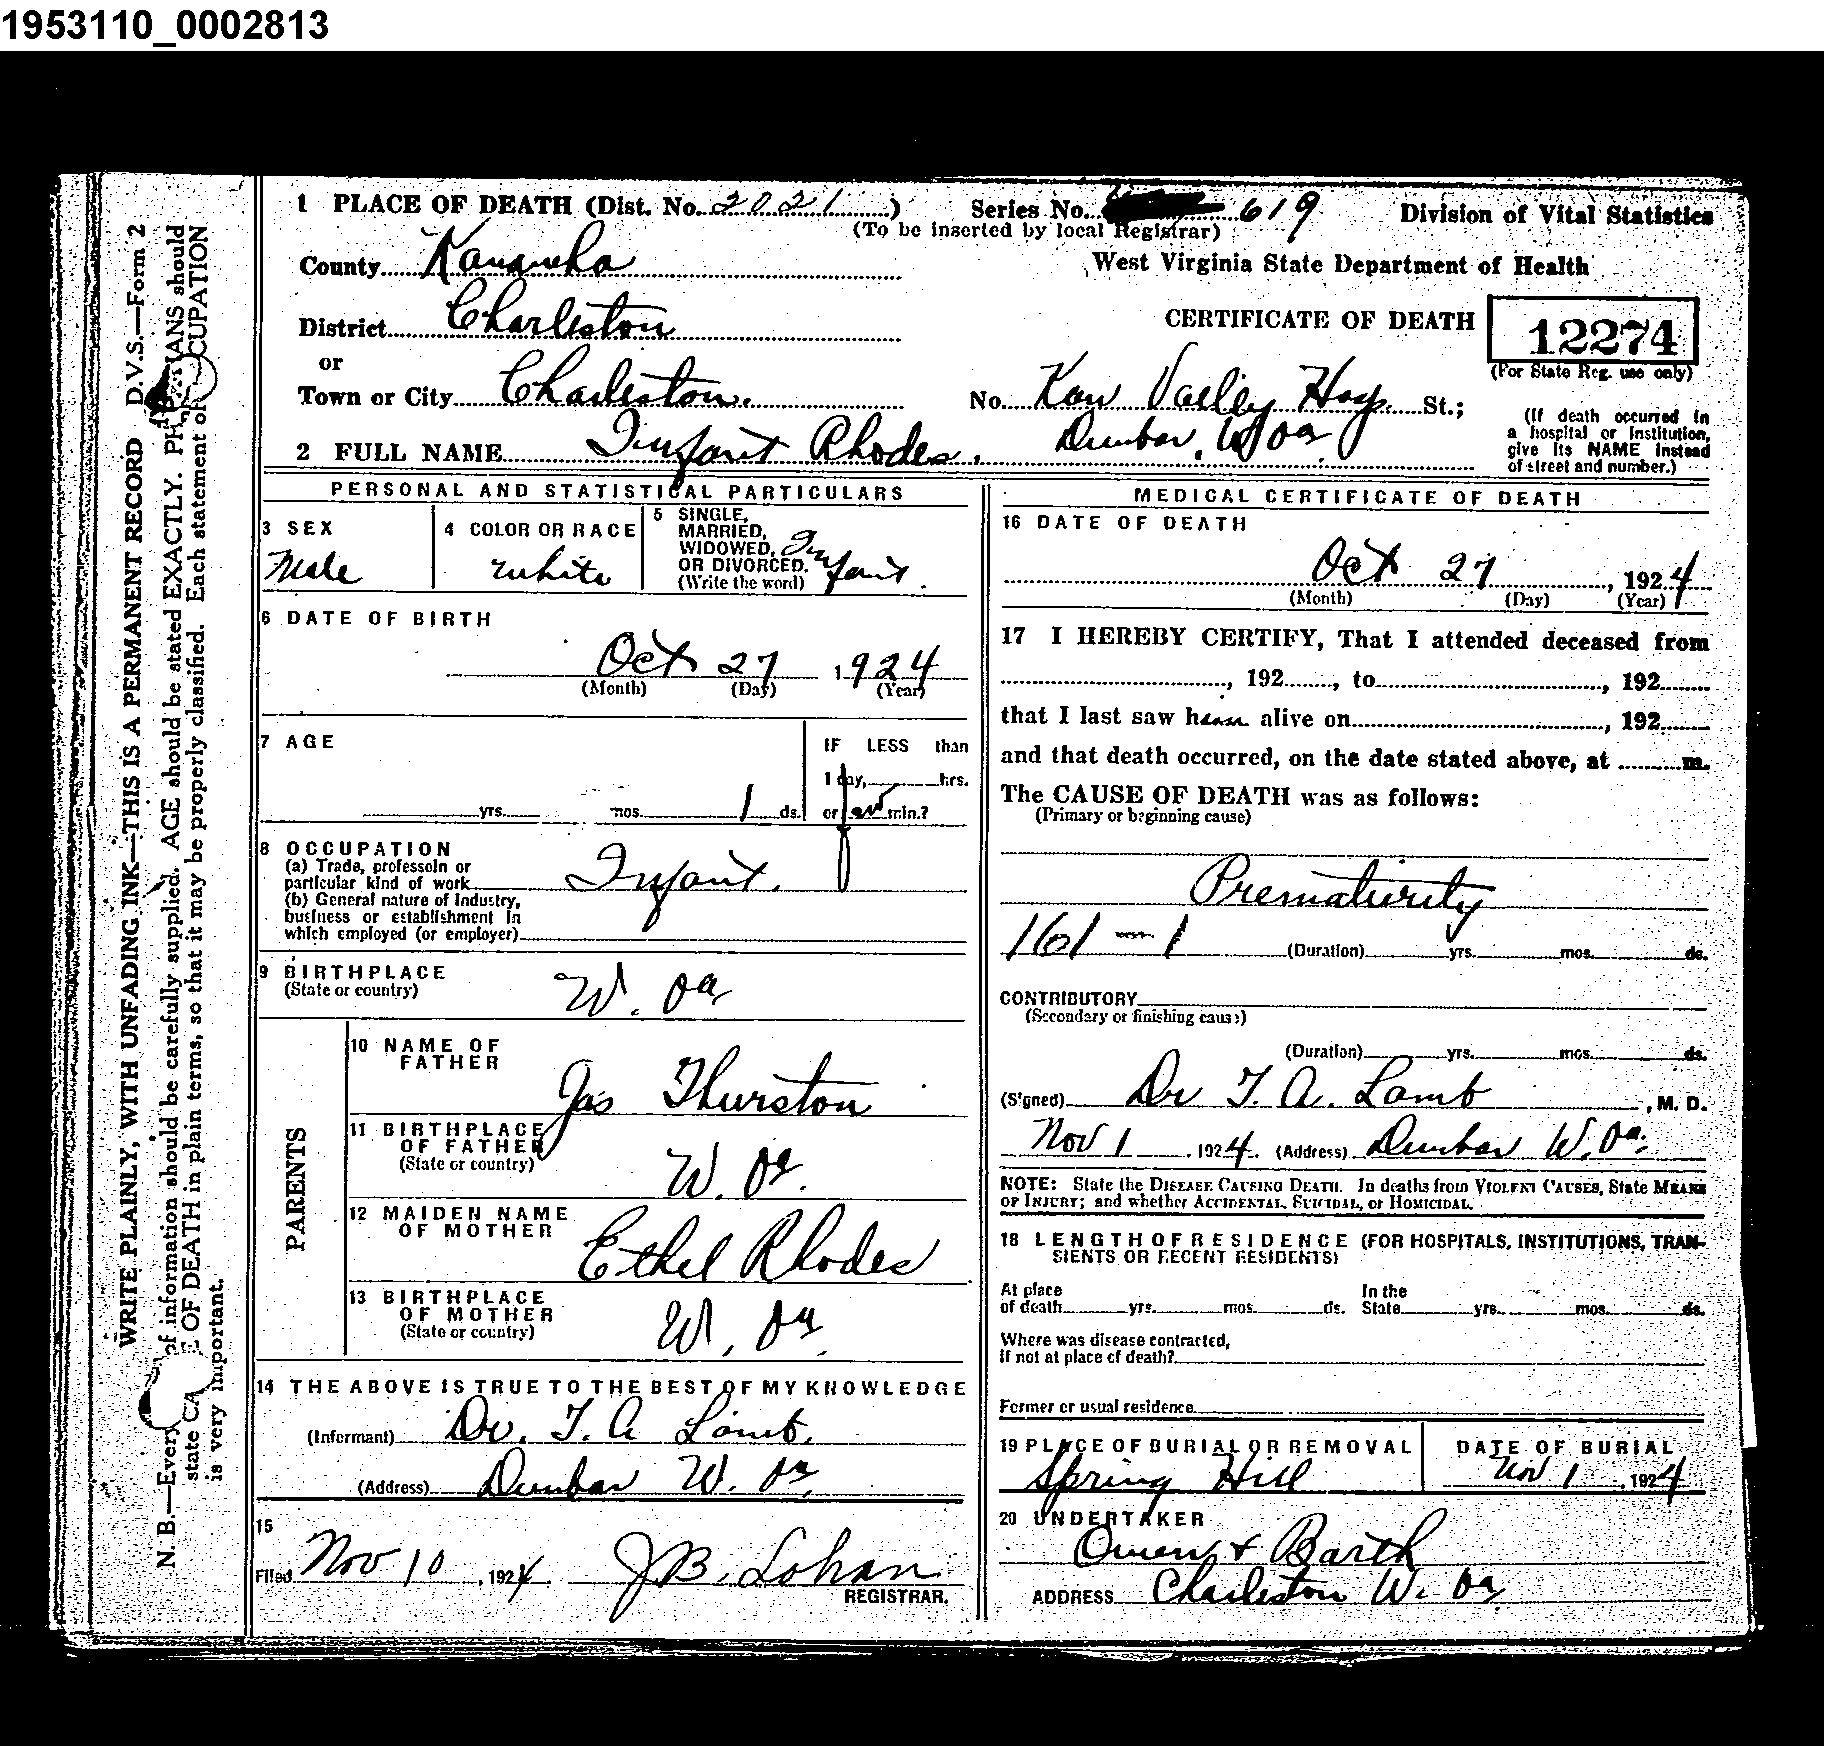 1953110_0002813
1 PLACE OF DEATH (Dist. No. 2021 ) Series No. 619 Division of Vital Statistics
(To be inserted by local Registrar)
County Kanawha West Virginia State Department of Health
District Charleston CERTIFICATE OF DEATH 12274
or (For State Reg. use only)
Town or City Charleston. No. Kan Valley Hosp. St.; (If death occurred in a hospital or institution, give its NAME instead of street and number.)
2 FULL NAME Infant Rhodes. Dunbar, W Va
PERSONAL AND STATISTICAL PARTICULARS
3 SEX Male
4 COLOR OR RACE white
5 SINGLE, MARRIED, WIDOWED, OR DIVORCED. (Write the word) Infant.
6 DATE OF BIRTH
Oct 27 1924
(Month) (Day) (Year)
7 AGE IF LESS than
1 day, hrs.
yrs. mos. 1 ds. or few min.?
8 OCCUPATION
(a) Trade, professoin or
particular kind of work Infant.
(b) General nature of Industry,
business or establishment in
which employed (or employer)
9 BIRTHPLACE
(State or country) W. Va
PARENTS
10 NAME OF
FATHER
Jas Thurston
11 BIRTHPLACE
OF FATHER
(State or country) W. Va.
12 MAIDEN NAME
OF MOTHER Ethel Rhodes
13 BIRTHPLACE
OF MOTHER
(State or country) W. Va.
14 THE ABOVE IS TRUE TO THE BEST OF MY KNOWLEDGE
(Informant) Dr. T. A Lamb.
(Address) Dunbar W. Va.
15
Filed Nov 10, 1924 J B. Lohan
REGISTRAR.
MEDICAL CERTIFICATE OF DEATH
16 DATE OF DEATH
Oct 27, 1924
(Month) (Day) (Year)
17 I HEREBY CERTIFY, That I attended deceased from
, 192 , to , 192
that I last saw h alive on , 192
and that death occurred, on the date stated above, at m.
The CAUSE OF DEATH was as follows:
(Primary or beginning cause)
Prematurity
161-1 (Duration) yrs. mos. ds.
CONTRIBUTORY
(Secondary or finishing cause)
(Duration) yrs. mos. ds.
(Signed) Dr T. A. Lamb, M. D.
Nov 1, 1924. (Address) Dunbar W. Va.
NOTE: State the DISEASE CAUSING DEATH. In deaths from VIOLENT CAUSES, State MEANS
OF INJURY; and whether ACCIDENTAL, SUICIDAL, or HOMICIDAL.
18 LENGTH OF RESIDENCE (FOR HOSPITALS, INSTITUTIONS, TRAN-
SIENTS OR RECENT RESIDENTS)
At place In the
of death yrs. mos. ds. State yrs. mos. ds.
Where was disease contracted,
if not at place of death?
Former or usual residence
19 PLACE OF BURIAL OR REMOVAL
Spring Hill
DATE OF BURIAL
Nov 1, 1924
20 UNDERTAKER
Owen & Barth
ADDRESS Charleston W. Va
WRITE PLAINLY, WITH UNFADING INK—THIS IS A PERMANENT RECORD D.V.S.—Form 2
N. B.—Every of information should be carefully supplied. AGE should be stated EXACTLY. should
state OF DEATH in plain terms, so that it may be properly classified. Each statement of
is very important.